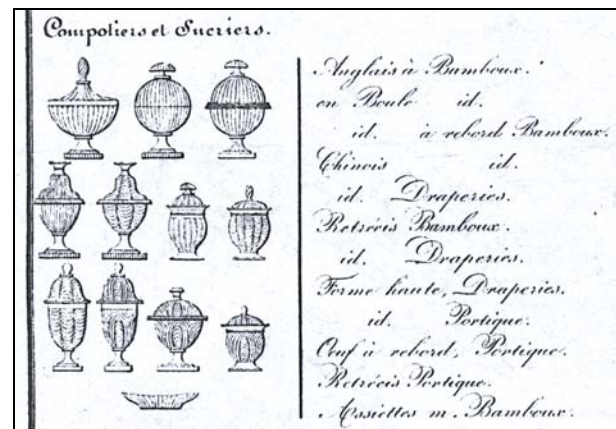 Compotiers et Sucriers.
Anglais à Bamboux.
en Boule id.
id. à rebord Bamboux.
Chinois id.
id. Draperies.
Retrécis Bamboux.
id. Draperies.
Forme haute, Draperies.
id. Portique.
Oeuf à rebord, Portique.
Retrécis Portique.
Assiettes m. Bamboux.